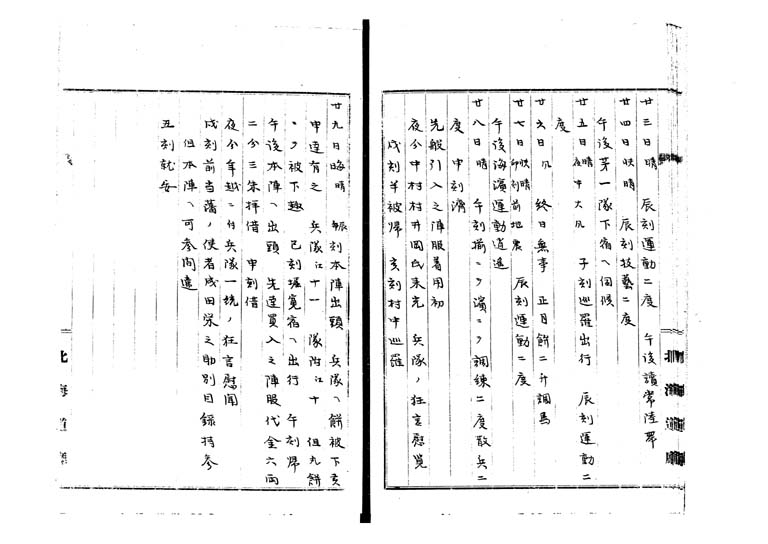 廿三日晴 辰刻運動二度 午後讀常陸帯
廿四日快晴 辰刻技藝二度
午後第一隊下宿ヘ伺候
廿五日晴夜中大風 子刻巡羅出行 辰刻運動二
度
廿六日風 終日無事 正月餅二升調馬
廿七日快晴卯刻前地震 辰刻運動二度
午後海濱運動逍遥
廿八日晴 午刻揃ニテ濱ニテ調練二度散兵二
度 申刻済
先般引入之陣服着用初
夜今中村村井岡氏来克 兵隊ノ狂言慰覧
戌刻半被帰 亥刻村中巡羅
廿九日晦晴 辰刻本陣出頭 兵隊ヘ餅被下亥
申達有之 兵隊江十一 隊附江十 但丸餅
ニテ被下趣 巳刻堀寛宿ヘ出行 午刻帰
午後本陣ヘ出頭 先達買入之陣服代金六両
二分三朱拝借 申刻借
夜今年越ニ付兵隊一統ノ狂言慰聞
戌刻前当藩ノ使者成田栄之助別目録持参
但本陣ヘ可参向達
五刻就安
北海道